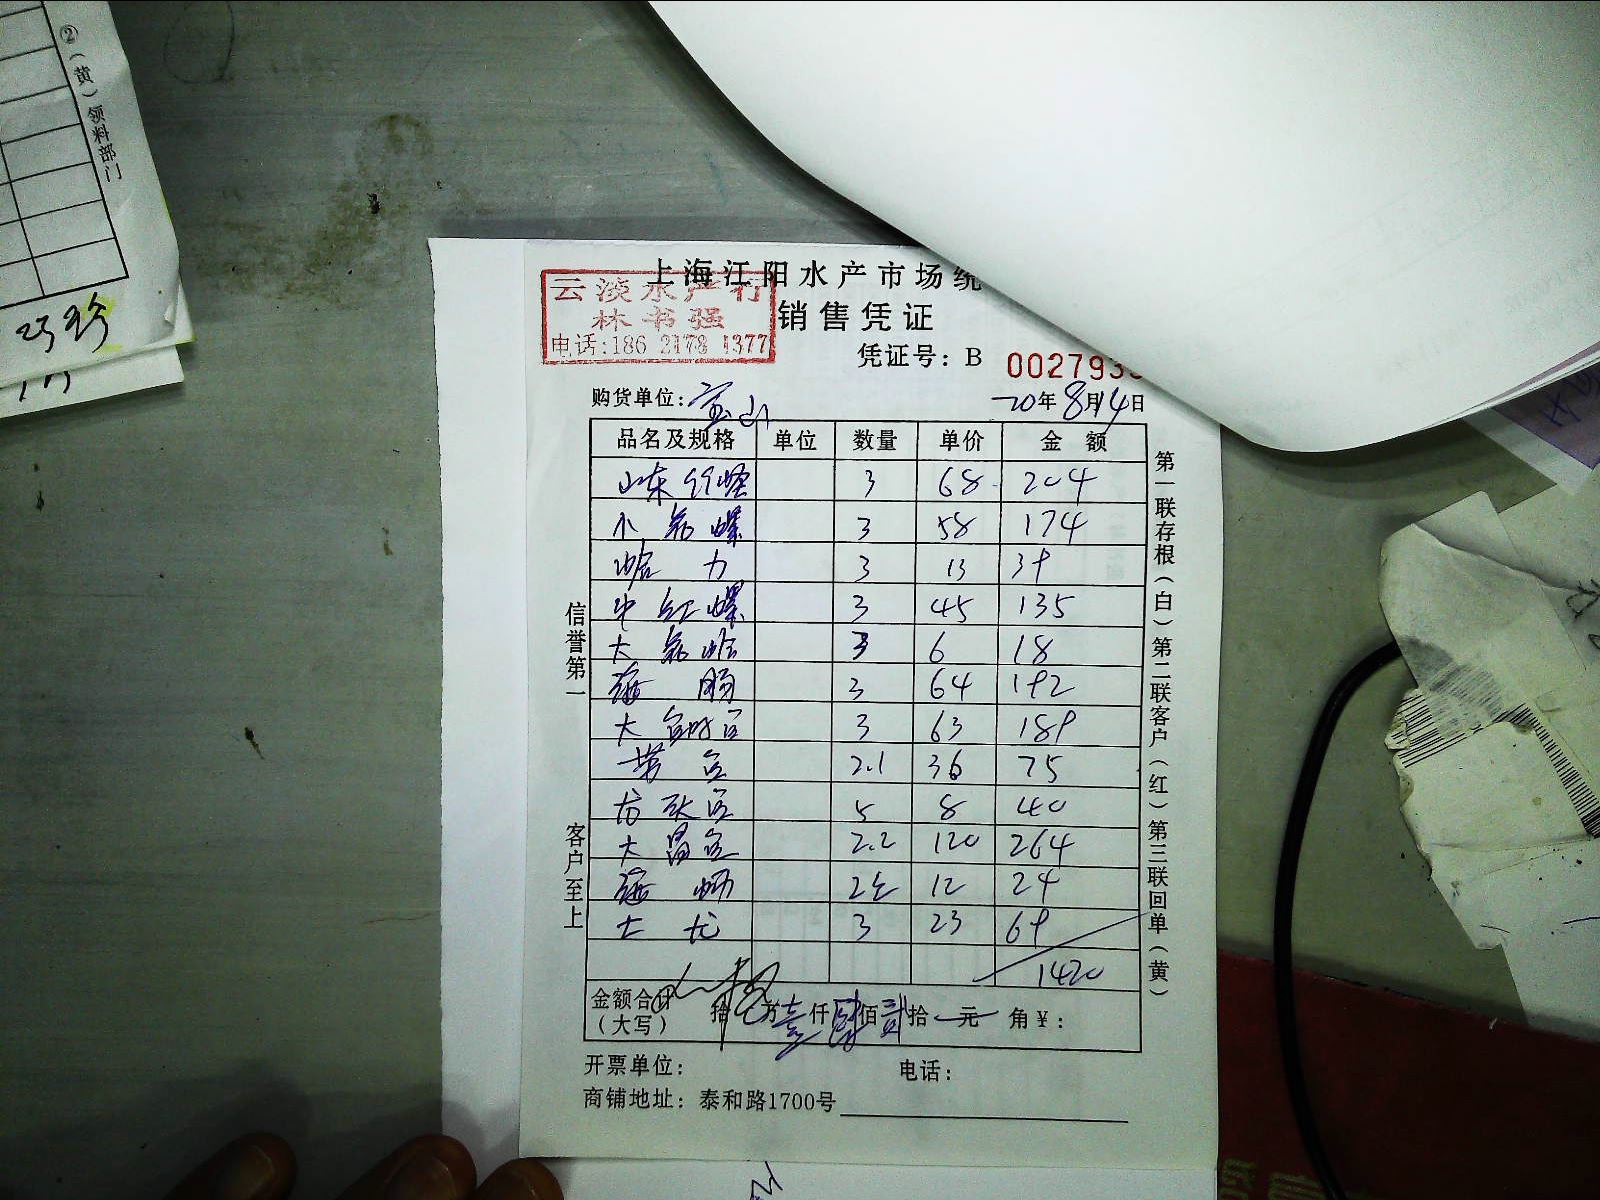 ②(黄)领料部门
上海江阳水产市场统
云淡水产行
林书强
电话:186 2178 1377
销售凭证
凭证号: B 002793
购货单位: 宝山
20年8月14日
品名及规格 单位 数量 单价 金 额
山东 3 68 204
小 螺 3 58 174
哈 力 3 13 39
中 红 螺 3 45 135
大 哈 3 6 18
海 肠 3 64 192
大 3 63 189
带 鱼 2.1 36 75
龙头鱼 5 8 40
大 昌 鱼 2.2 120 264
海 蛎 2 12 24
七 尤 3 23 69
1420
金额合计
(大写) 拾 万壹仟肆佰贰拾 元 角¥:
开票单位: 电话:
商铺地址: 泰和路1700号
信誉第一
客户至上
第一联存根(白)第二联客户(红)第三联回单(黄)